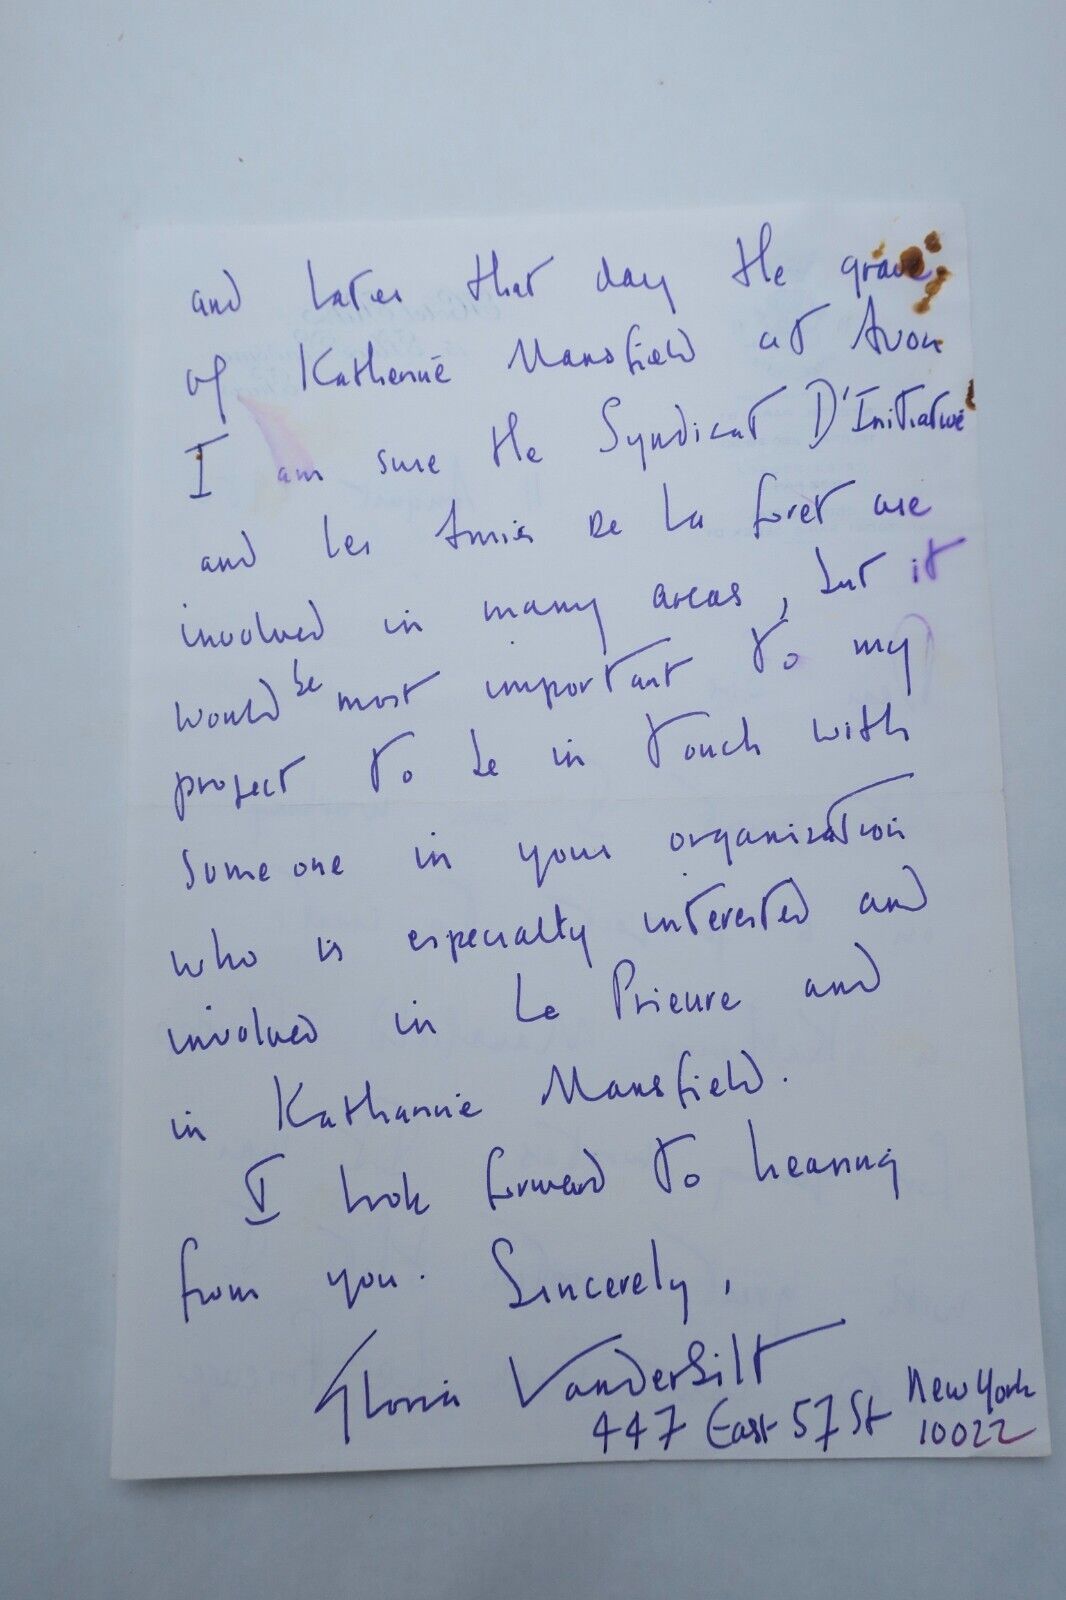 and later that day the grave
of Katherine Mansfield at Avon
I am sure the Syndicat D'Initiative
and les Amis de la foret are
involved in many areas, but it
would be most important to my
project to be in touch with
someone in your organization
who is especialty interested and
involved in Le Prieure and
in Katharine Mansfield.
I look forward to hearing
from you. Sincerely,
Gloria Vanderbilt
447 East 57 St New York
10022